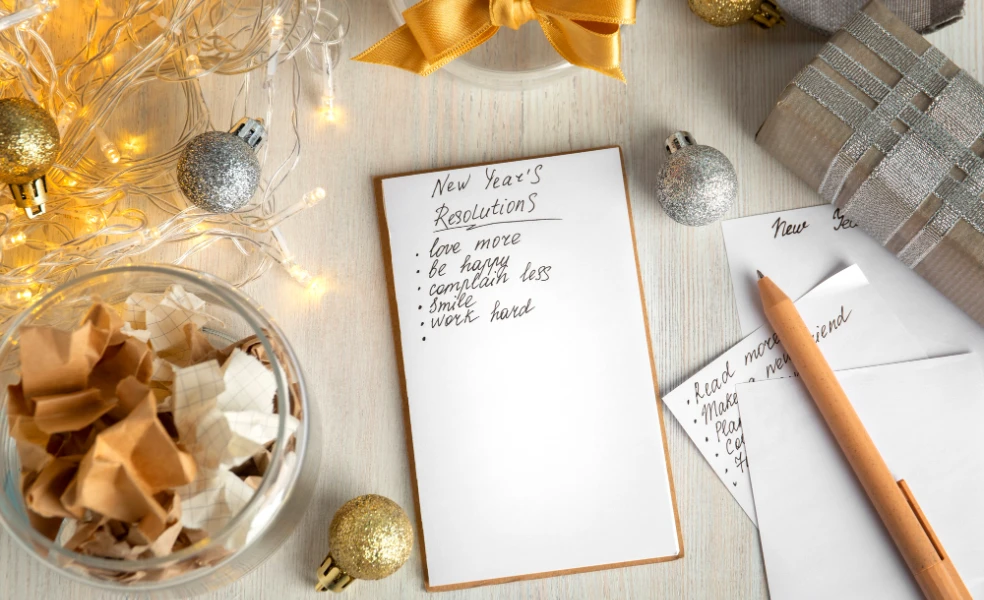 New Year's
Resolutions
• love more
• be happy
• complain less
• smile
• work hard
•
New
• Read more
• Make new friend